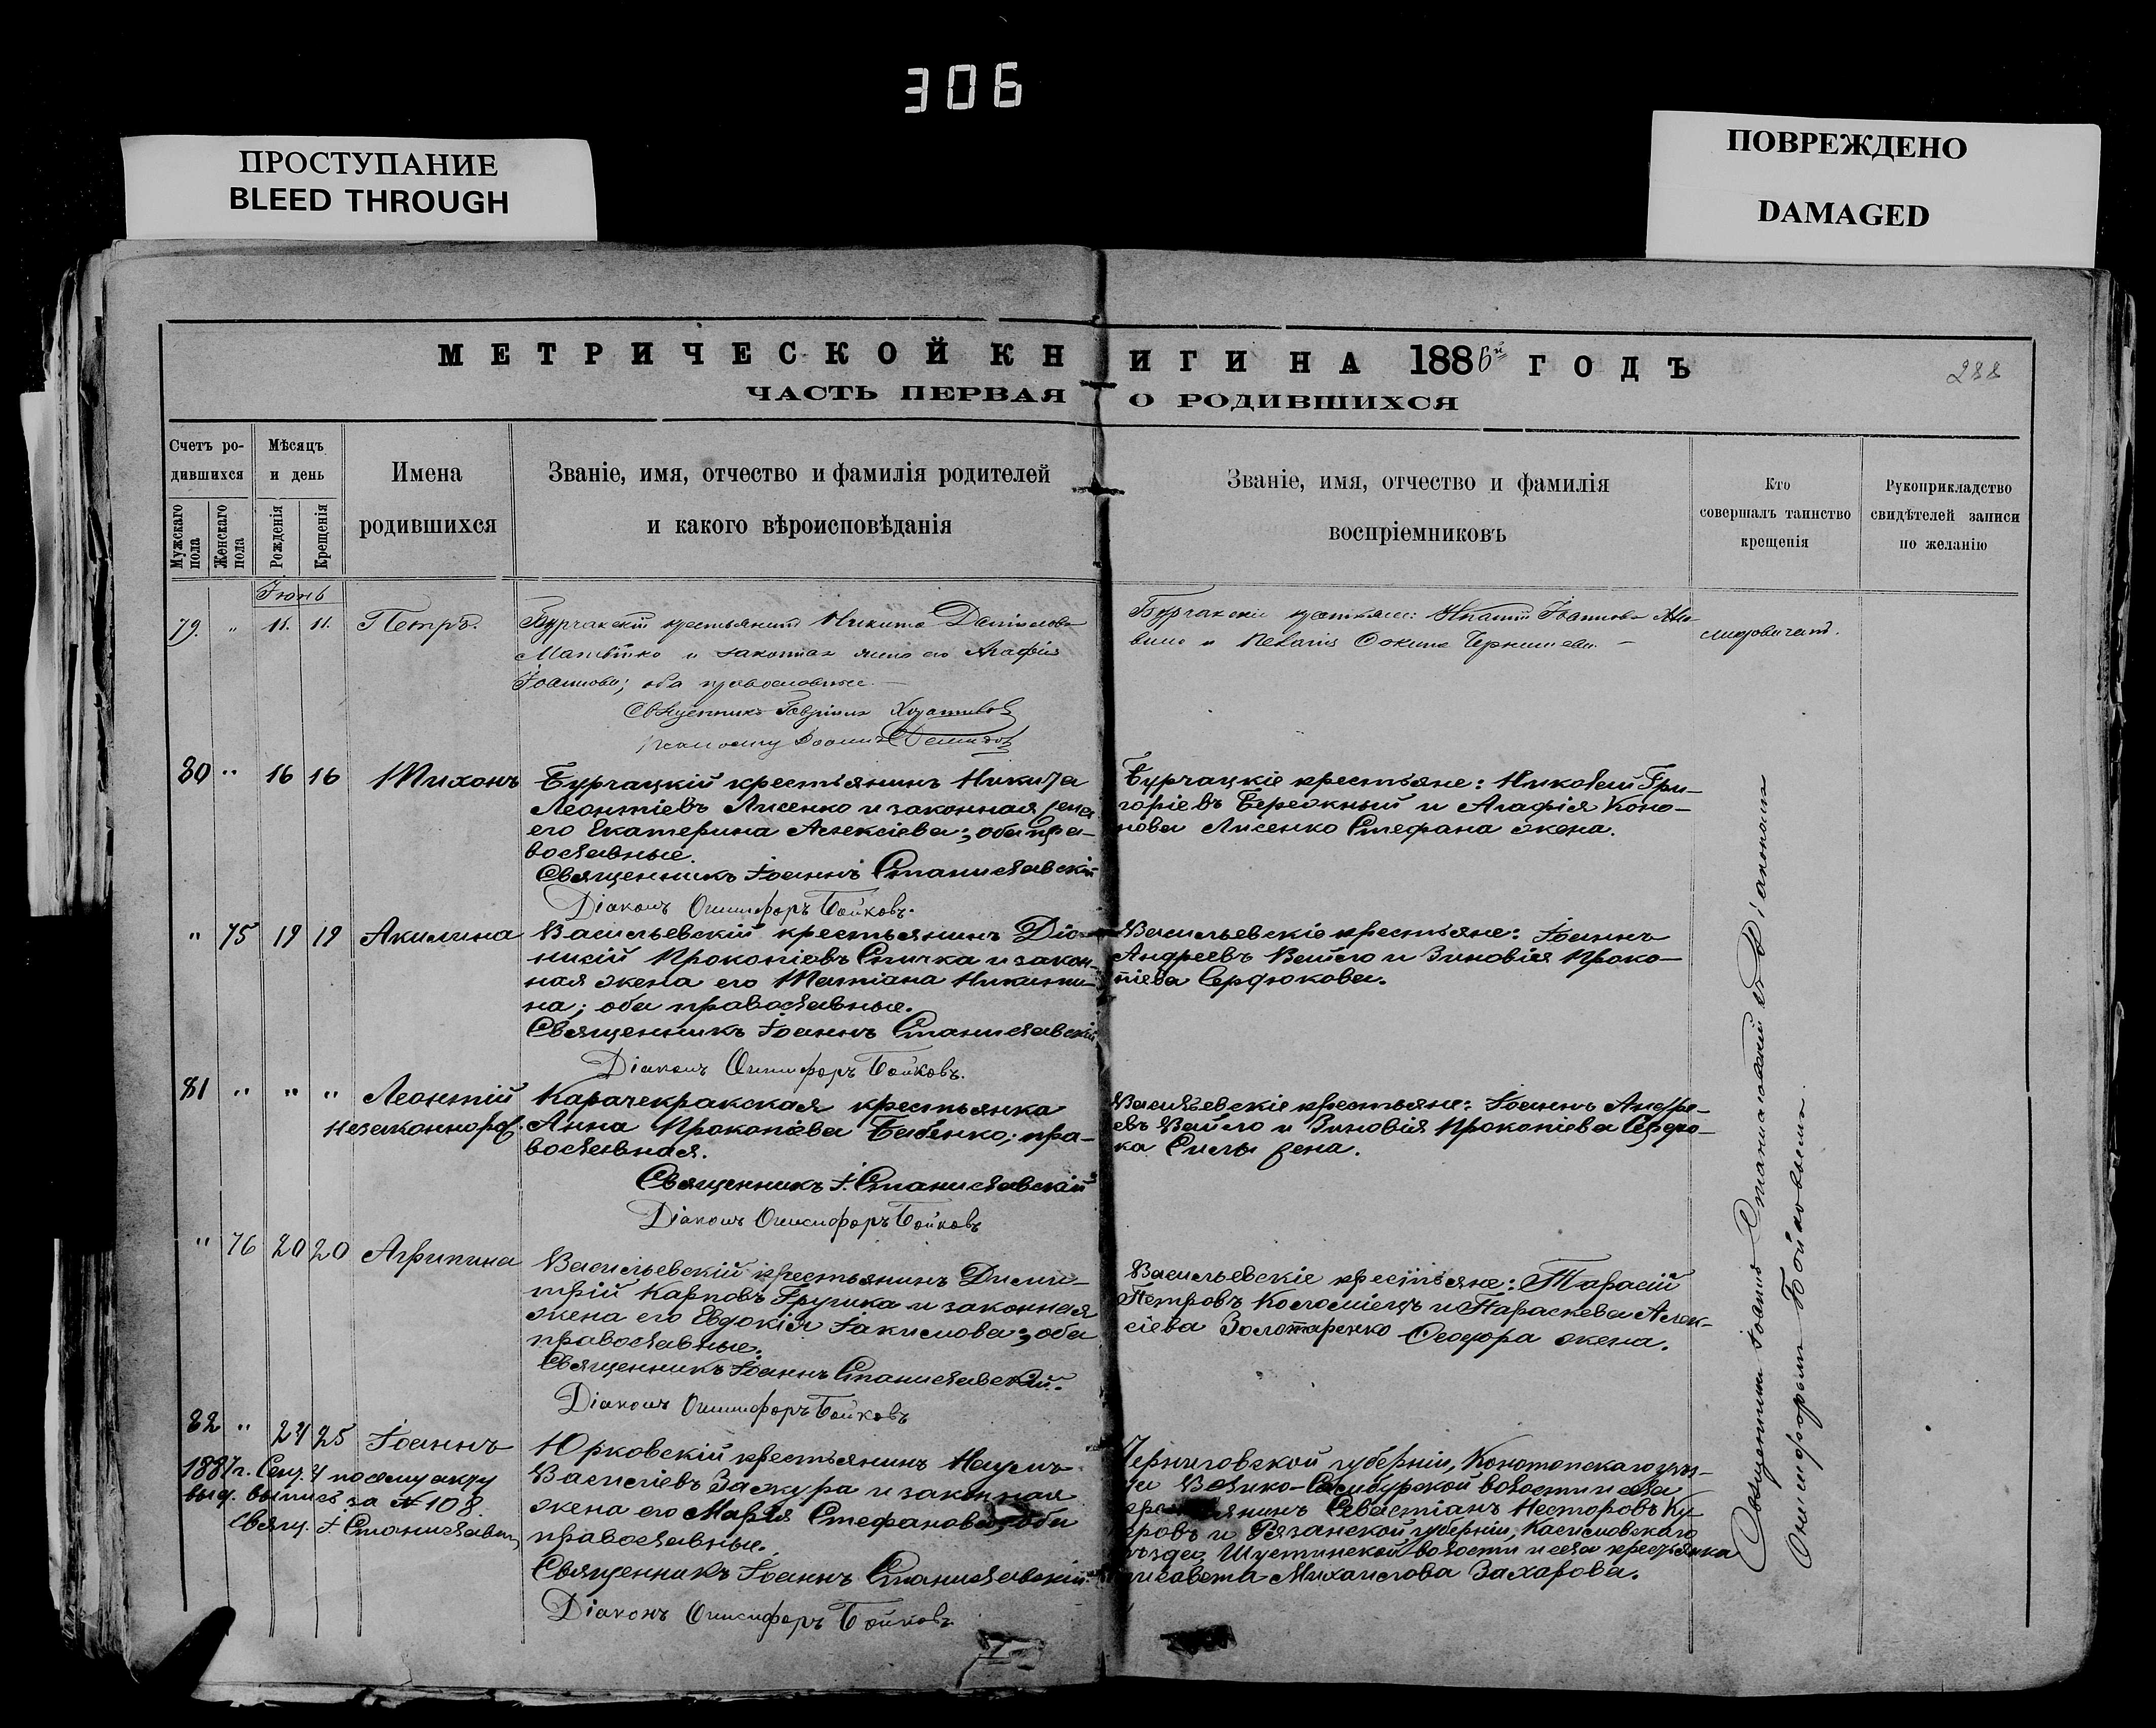 306
ПРОСТУПАНИЕ
BLEED THROUGH
ПОВРЕЖДЕНО
DAMAGED
МЕТРИЧЕСКОЙ КНИГИ НА 1886й ГОДЪ
288
ЧАСТЬ ПЕРВАЯ О РОДИВШИХСЯ
Счетъ ро-
дившихся
Мужскаго пола
Женскаго пола
Мѣсяцъ
и день
Рожденія
Крещенія
Имена
родившихся
Званіе, имя, отчество и фамилія родителей
и какого вѣроисповѣданія
Званіе, имя, отчество и фамилія
воспріемниковъ
Кто
совершалъ таинство
крещенія
Рукоприкладство
свидѣтелей записи
по желанію
Іюнь
79. " 11. 11. Петръ.
крестьянинъ Никита
и законная жена его Агафія
Іоаннова; оба православные.
Священникъ
80 " 16 16 Тихонъ
Бурчацкій крестьянинъ Никита
Леонтіевъ Лисенко и законная жена
его Екатерина Алексіева; оба пра-
вославные.
Священникъ Іоаннъ Станиславскій
Діаконъ Онисифоръ Бойковъ.
Бурчацкіе крестьяне: Николай Гри-
горіевъ Бережный и Агафія Коно-
нова Лисенко Стефана жена.
" 75 19 19 Акилина
Васильевскій крестьянинъ Діо-
нисій Прокопіевъ Спичка и закон-
ная жена его Татіана Никити-
на; оба православные.
Священникъ Іоаннъ Станиславскій
Діаконъ Онисифоръ Бойковъ.
Васильевскіе крестьяне: Іоаннъ
Андреевъ Вайло и Зиновія Проко-
піева Сердюкова.
81 " " " Леонтій
незаконнорд.
Карачекракская крестьянка
Анна Прокопіева Бабенко; пра-
вославная.
Священникъ І. Станиславскій
Діаконъ Онисифоръ Бойковъ
Васильевскіе крестьяне: Іоаннъ Андре-
евъ Вайло и Зиновія Прокопіева Сердю-
ка Силы жена.
" 76 20 20 Агрипина
Васильевскій крестьянинъ Дими-
трій Карповъ Грушка и законная
жена его Евдокія Іакимова; оба
православные.
Священникъ Іоаннъ Станиславскій.
Діаконъ Онисифоръ Бойковъ
Васильевскіе крестьяне: Тарасій
Петровъ Коломіецъ и Параскева Алек-
сіева Золотаренко Феодора жена.
82 " 24 25 Іоаннъ
1887г. Сент. 4 по сему акту
выд. выпись за № 108.
Свящ. І. Станиславск
Юрковскій крестьянинъ Наумъ
Василіевъ Зажура и законная
жена его Марія Стефанова; оба
православные.
Священникъ Іоаннъ Станиславскій.
Діаконъ Онисифоръ Бойковъ
Черниговской губерніи, Конотопскаго уѣз-
да Велико-Самбурской волости и села
Севастіанъ Несторовъ Ку-
и Рязанской губерніи, Касимовскаго
уѣзда, Шустинской волости и села крестьянка
Елисавета Михаилова Захарова.
Священникъ Іоаннъ Станиславскій съ Діакономъ
Онисифоромъ Бойковымъ.